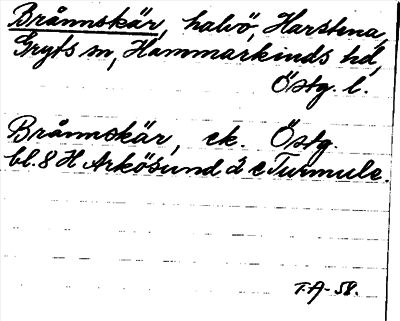 Brånnskär, halvö, Harstena,
Gryts sn, Hammarkinds hd,
Östg. l.
Brånnskär, ek. Östg.
bl. 8 H Arkösund 2 c Turmule.
T.A-58.